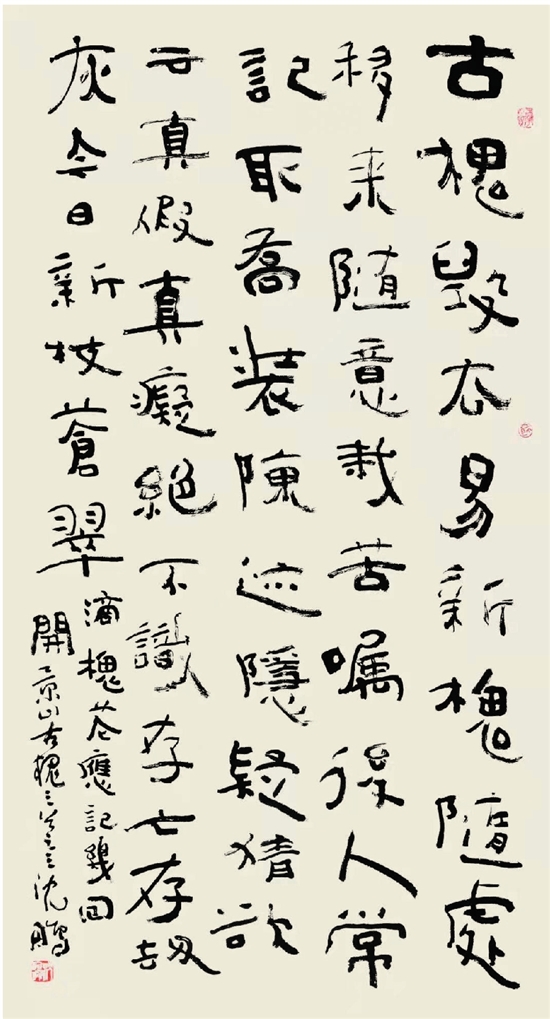 古槐毀去易新槐隨處
移来隨意栽苦嘱後人常
記取喬裝陳迹隱疑猜欲
云真假真癡絕不識存亡存劫
灰今日新枝蒼翠
滴槐花應記幾回
開 景山古槐三首之三 沈鵬